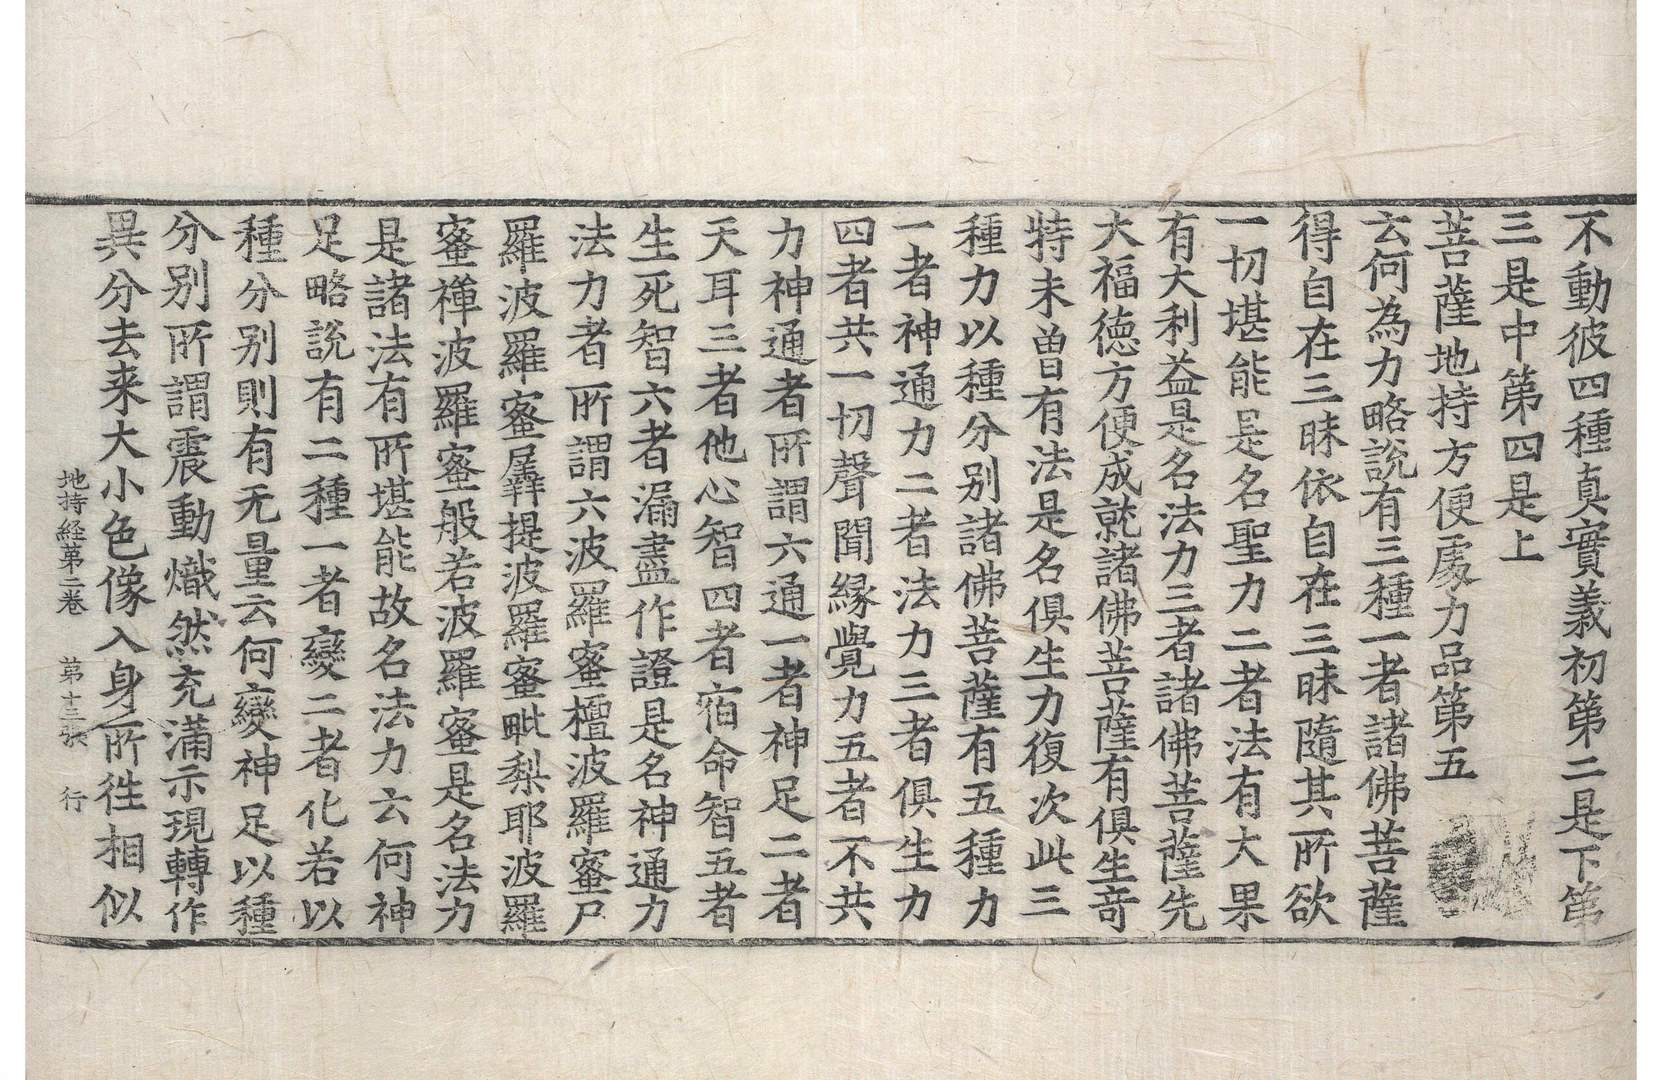 不動彼四種真實義初第二是下第
三是中第四是上
菩薩地持方便處力品第五
云何為力略說有三種一者諸佛菩薩
得自在三昧依自在三昧隨其所欲
一切堪能是名聖力二者法有大果
有大利益是名法力三者諸佛菩薩先
大福德方便成就諸佛菩薩有俱生奇
特未曽有法是名俱生力復次此三
種力以種分别諸佛菩薩有五種力
一者神通力二者法力三者俱生力
四者共一切聲聞緣覺力五者不共
力神通者所謂六通一者神足二者
天耳三者他心智四者宿命智五者
生死智六者漏盡作證是名神通力
法力者所謂六波羅蜜檀波羅蜜尸
羅波羅蜜羼提波羅蜜毗梨耶波羅
蜜禪波羅蜜般若波羅蜜是名法力
是諸法有所堪能故名法力云何神
足略說有二種一者變二者化若以
種分别則有无量云何變神足以種
分别所謂震動熾然充滿示現轉作
異分去来大小色像入身所往相似
地持経第二卷 第十三張 行